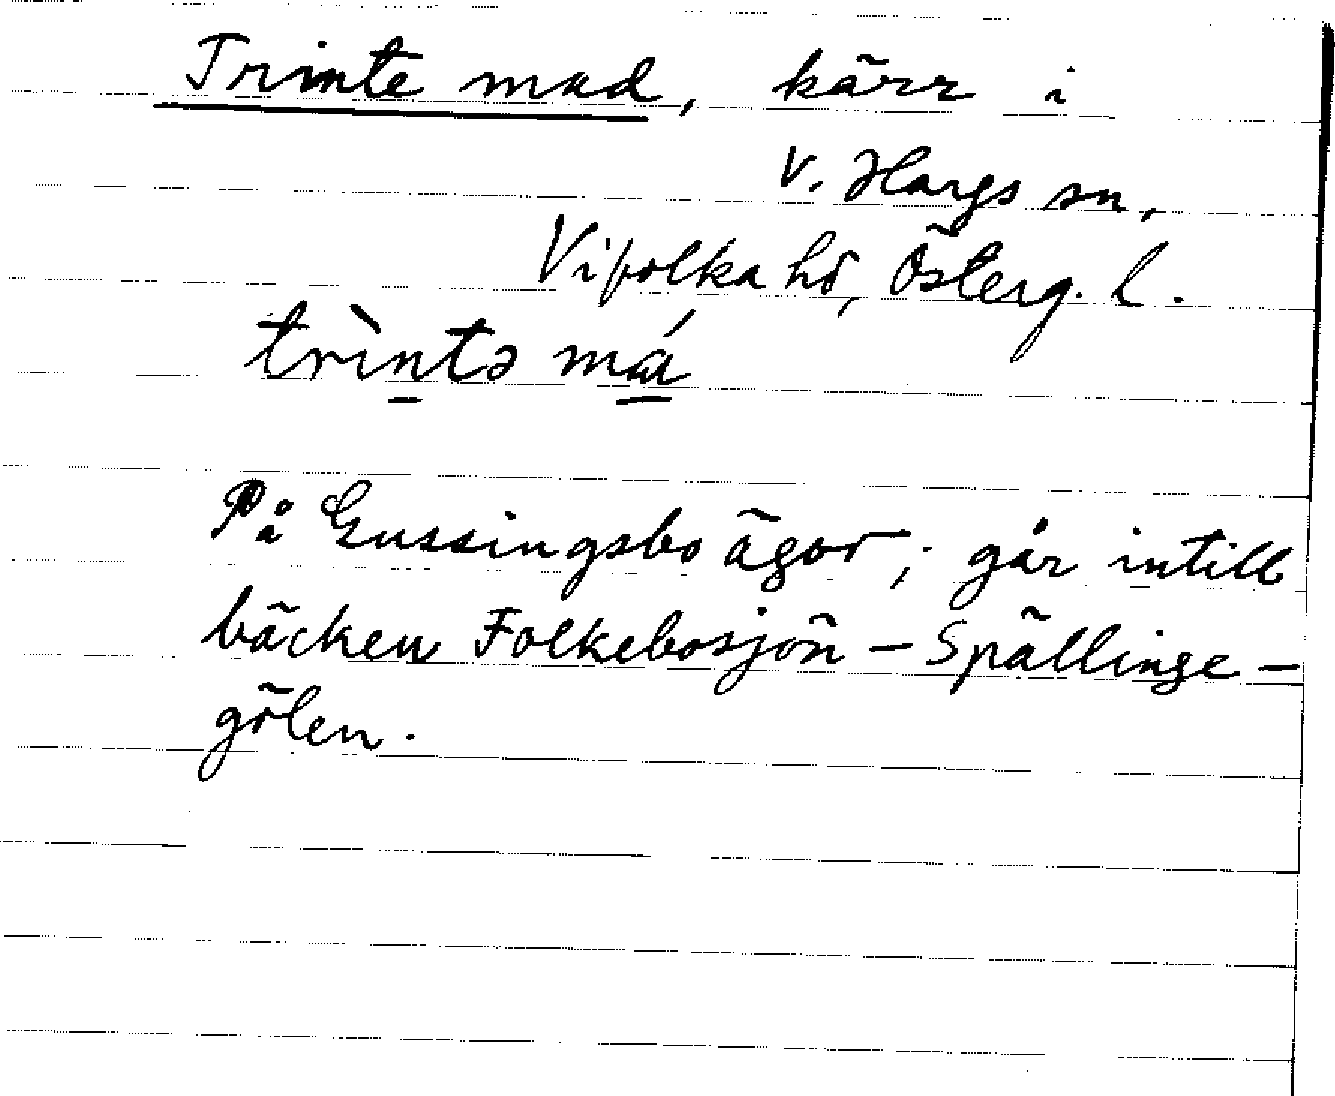 Trinte mad, kärr i
V. Hargs sn,
Vifolka hd, Österg. l.
trìntə má
På Gussingsbo ägor; går intill
bäcken Folkebosjön - Spällinge-
gölen.